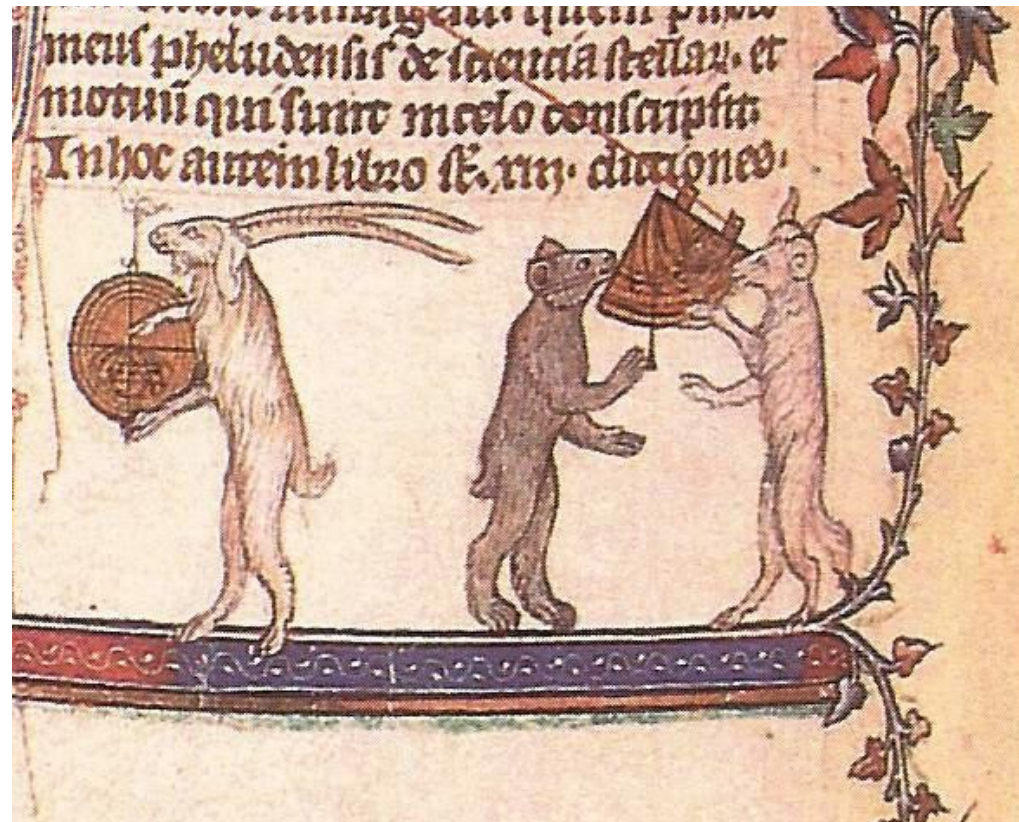 quem ptholo
meus pheludensis de sciencia stellaꝝ. et
motuū qui sunt in celo conscripsit.
In hoc autem libro st̄. xiij. dictiones.